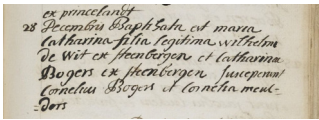 ex princelandt
28 Decembris Baptisata est maria
Catharina filia legitima wilhelmi
de wit ex steenbergen et Catharina
Bogers ex steenbergen susceperunt
Cornelius Bogers et Cornelia meul-
-ders